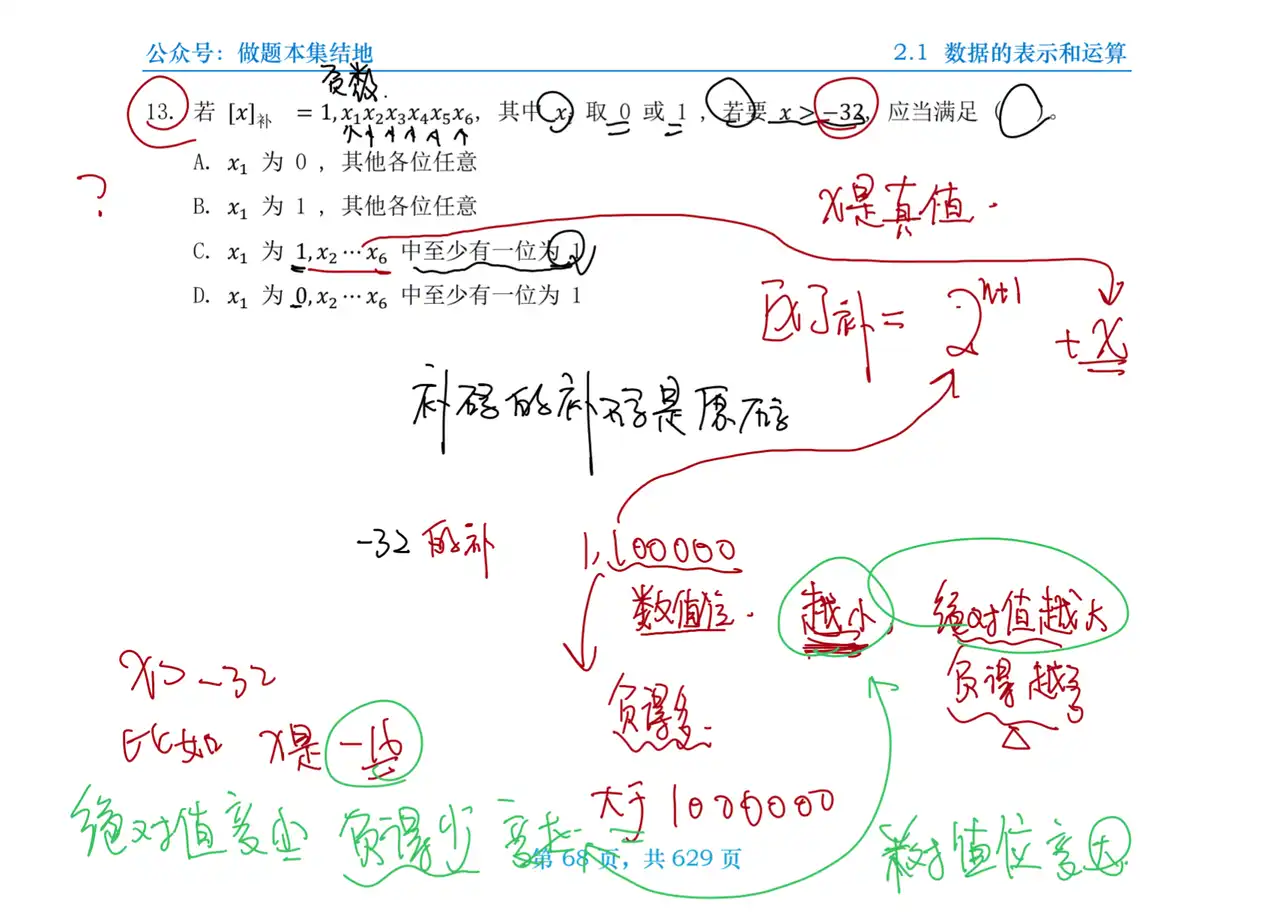 公众号：做题本集结地 2.1 数据的表示和运算
负数.
13. 若 [x]补 = 1,x₁x₂x₃x₄x₅x₆, 其中 xᵢ 取 0 或 1 , 若要 x > −32, 应当满足 ( )。
A. x₁ 为 0 , 其他各位任意
?
B. x₁ 为 1 , 其他各位任意
x是真值.
C. x₁ 为 1,x₂⋯x₆ 中至少有一位为 1
D. x₁ 为 0,x₂⋯x₆ 中至少有一位为 1
[x]补 = 2ⁿ⁺¹ + x
补码的补码是原码
-32 的补 1,100000
数值位. 越小, 绝对值越大
x>-32 负得越多
比如 x是 负得多.
绝对值变小 负得少 大于 1000000
第 68 页，共 629 页